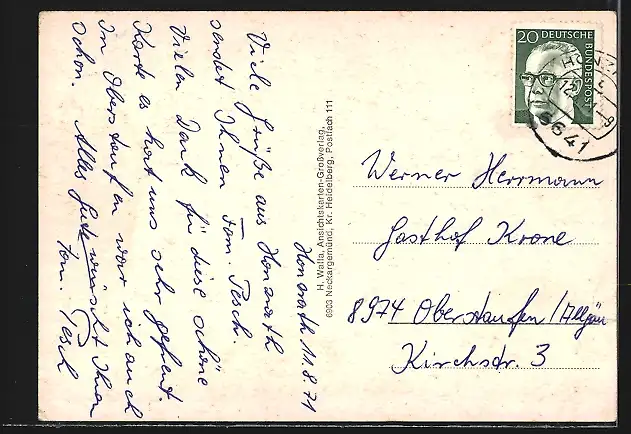 Honrath 11.8.71
Viele Grüße aus Honrath
sendet Ihnen Fam. Pesch.
Vielen Dank für diese schöne
Karte es hat uns sehr gefreut.
In Oberstaufen war ich auch
schon. Alles Gute wünscht Ihnen
Fam. Pesch
H. Walla, Ansichtskarten-Großverlag,
6903 Neckargemünd, Kr. Heidelberg, Postfach 111
20 DEUTSCHE
BUNDESPOST
Werner Herrmann
Gasthof Krone
8974 Oberstaufen/Allgäu
Kirchstr. 3